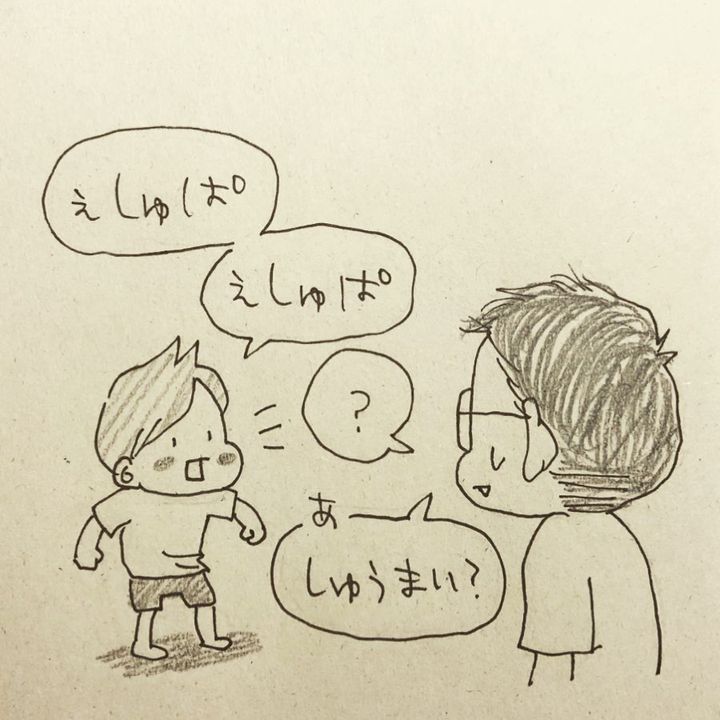 えしゅぱ
えしゅぱ
?
あ
しゅうまい?